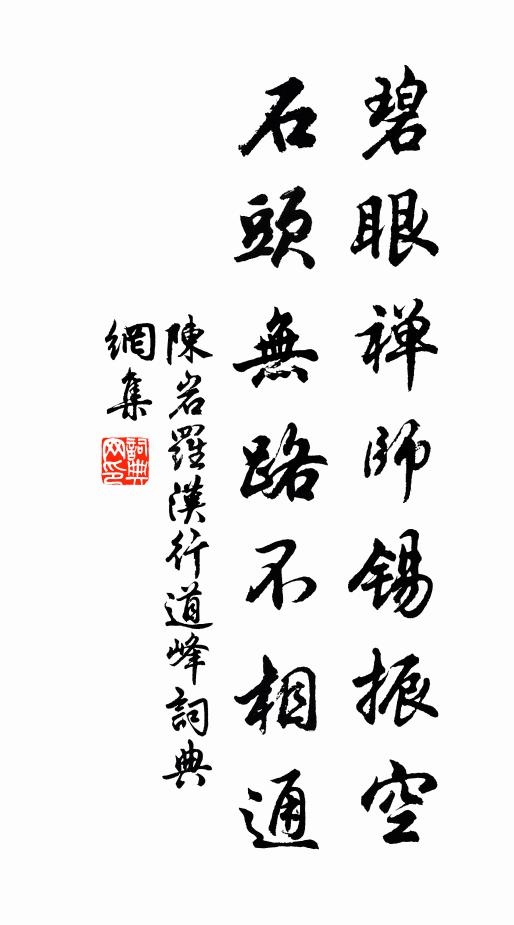 碧眼禅師錫振空
石頭無路不相通
陳岩羅漢行道峰詞典
網集
詞典
网印